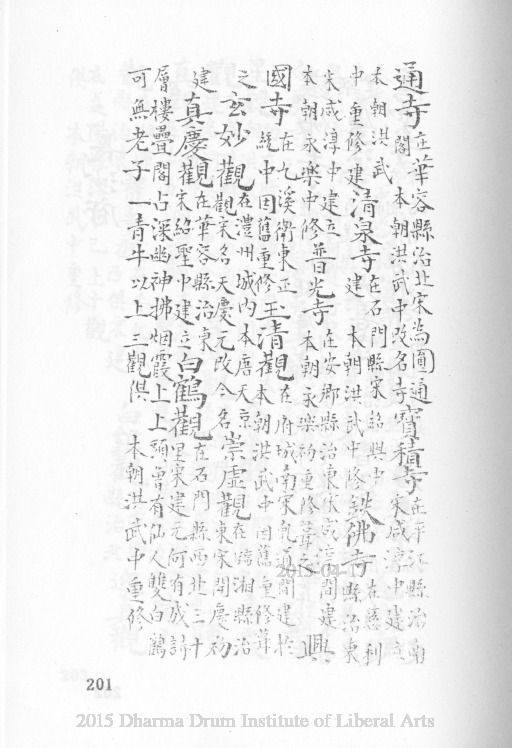 通寺在華容縣治北宋為圓通閣 本朝洪武中改名寺寶積寺在平江縣治南宋咸淳中建立
本朝洪武中重修建清泉寺在石門縣宋紹興中建 本朝洪武中修鉄佛寺在慈利縣治東
宋咸淳中建立本朝永樂中修普光寺在安鄉縣治東宋咸淳間建本朝永樂初重修葺之興
國寺在九溪衛東正統中因舊重修玉清觀在府城南宋乾道間建於本朝洪武中因舊重修葺
之玄妙觀在澧州城內本唐天京觀宋名天慶元改今名崇虛觀在臨湘縣治東宋開慶初
建真慶觀在華容縣治東宋紹聖中建立白鶴觀在石門縣西北三十里宋建元何有成詩
層樓疊閣占深幽神拂烟霞上上頭曾有仙人雙白鶴
可無老子一青牛以上三觀俱 本朝洪武中重修
201
2015-04-17
2015 Dharma Drum Institute of Liberal Arts